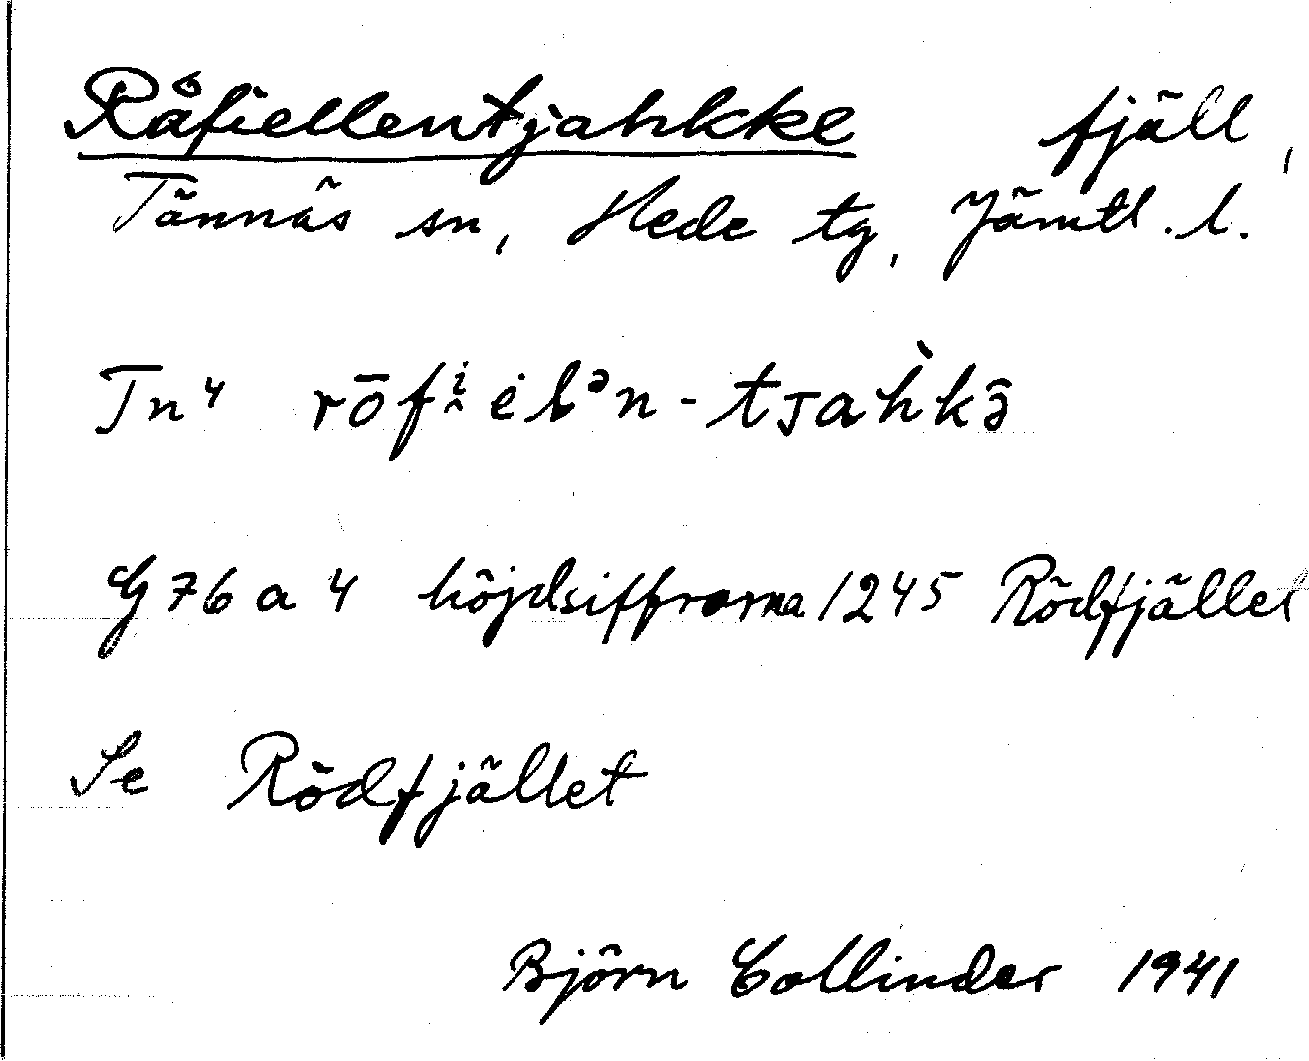 Råfiellentjahkke fjäll,
Tännäs sn, Hede tg, Jämtl. l.
Tn4 rōfi̭ėlᵊn-tsahkə̂
G 76 a 4 höjdsiffrorna 1245 Rödfjället
Se Rödfjället
Björn Collinder 1941